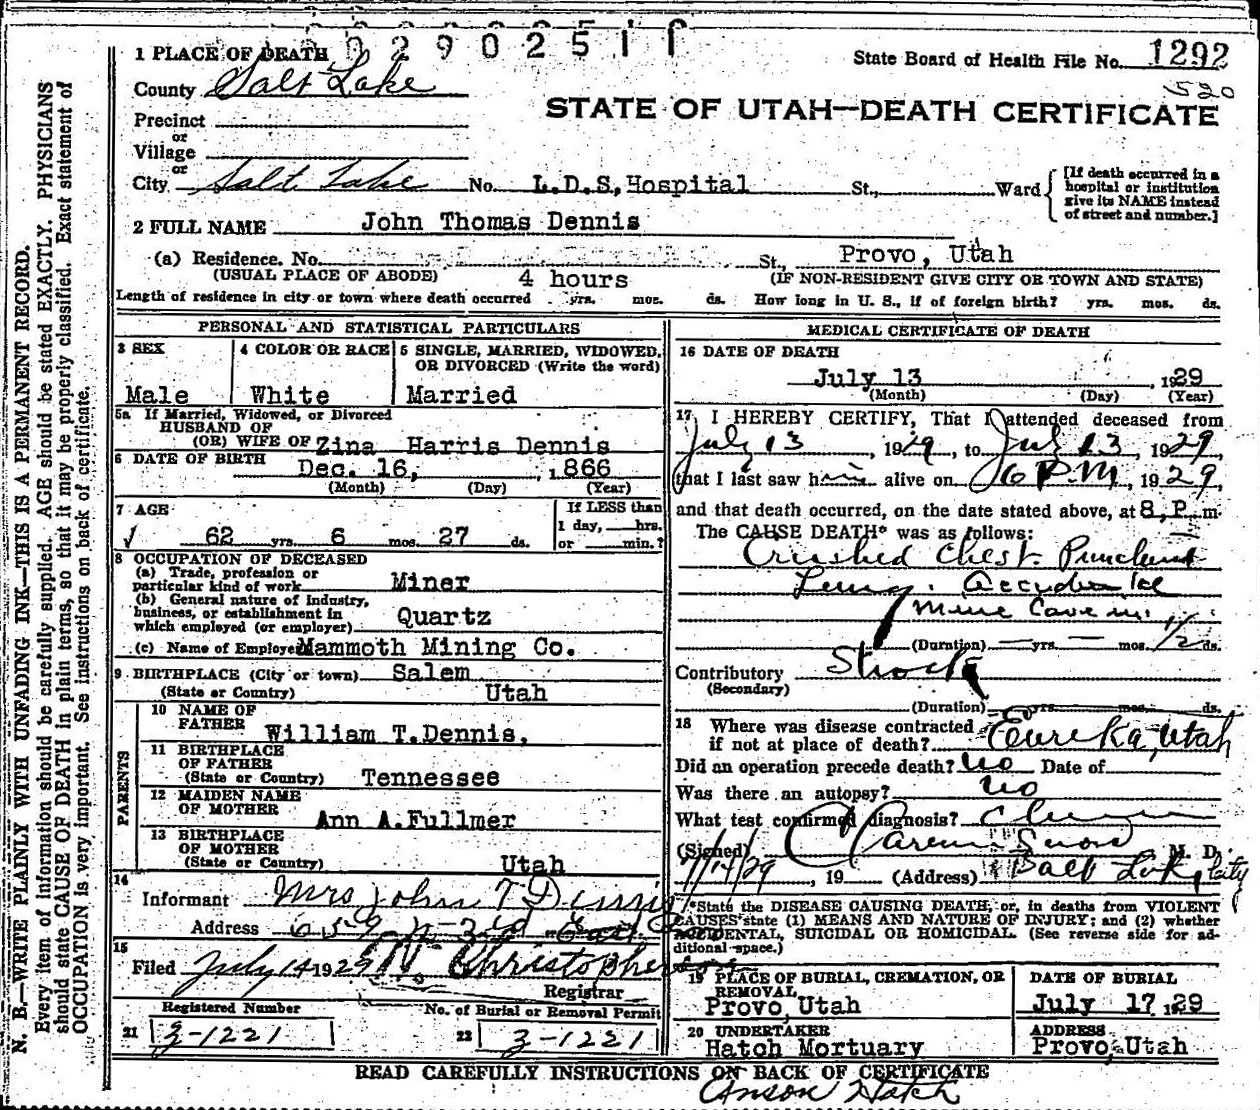 0 2 9 0 2 5 1 1
1 PLACE OF DEATH
State Board of Health File No. 1292
520
County Salt Lake
STATE OF UTAH—DEATH CERTIFICATE
Precinct
or
Village
or
City Salt Lake No. L.D.S, Hospital St., Ward
[If death occurred in a
hospital or institution
give its NAME instead
of street and number.]
2 FULL NAME John Thomas Dennis
(a) Residence. No. St., Provo, Utah
(USUAL PLACE OF ABODE) (IF NON-RESIDENT GIVE CITY OR TOWN AND STATE)
4 hours
Length of residence in city or town where death occurred yrs. mos. ds. How long in U. S., if of foreign birth? yrs. mos. ds.
PERSONAL AND STATISTICAL PARTICULARS
3 SEX 4 COLOR OR RACE 5 SINGLE, MARRIED, WIDOWED,
OR DIVORCED (Write the word)
Male White Married
5a If Married, Widowed, or Divorced
HUSBAND OF
(OR) WIFE OF Zina Harris Dennis
6 DATE OF BIRTH Dec. 16, 1866
(Month) (Day) (Year)
7 AGE If LESS than
1 day, hrs.
62 yrs. 6 mos. 27 ds. or min.?
8 OCCUPATION OF DECEASED
(a) Trade, profession or
particular kind of work Miner
(b) General nature of industry,
business, or establishment in
which employed (or employer) Quartz
(c) Name of Employer Mammoth Mining Co.
9 BIRTHPLACE (City or town) Salem
(State or Country) Utah
PARENTS
10 NAME OF
FATHER William T. Dennis,
11 BIRTHPLACE
OF FATHER
(State or Country) Tennessee
12 MAIDEN NAME
OF MOTHER Ann A. Fullmer
13 BIRTHPLACE
OF MOTHER
(State or Country) Utah
14
Informant Mrs John T Dennis
Address 659 N 3rd East
15
Filed July 14 1929 Christophers
Registrar
Registered Number No. of Burial or Removal Permit
21 3-1221 22 3-1221
MEDICAL CERTIFICATE OF DEATH
16 DATE OF DEATH
July 13, 1929
(Month) (Day) (Year)
17 I HEREBY CERTIFY, That I attended deceased from
July 13, 1929, to July 13, 1929,
that I last saw him alive on 6 P.M, 1929,
and that death occurred, on the date stated above, at 8, P. m.
The CAUSE DEATH* was as follows:
Crushed Chest. Punctured
Lung. Accidental
Mine Cave in.
(Duration) — yrs. — mos. 1/2 ds.
Contributory Shock
(Secondary)
(Duration) yrs. mos. ds.
18 Where was disease contracted
if not at place of death? Eureka, Utah
Did an operation precede death? no Date of
Was there an autopsy? no
What test confirmed diagnosis?
(Signed) Clarence Snow M. D.
7/14/29, 19 (Address) Salt Lake City
*State the DISEASE CAUSING DEATH, or, in deaths from VIOLENT
CAUSES state (1) MEANS AND NATURE OF INJURY; and (2) whether
ACCIDENTAL, SUICIDAL OR HOMICIDAL. (See reverse side for ad-
ditional space.)
19 PLACE OF BURIAL, CREMATION, OR
REMOVAL
Provo, Utah
DATE OF BURIAL
July 17, 1929
20 UNDERTAKER
Hatch Mortuary
ADDRESS
Provo, Utah
READ CAREFULLY INSTRUCTIONS ON BACK OF CERTIFICATE
Anson Hatch
N. B.—WRITE PLAINLY WITH UNFADING INK—THIS IS A PERMANENT RECORD.
Every item of information should be carefully supplied. AGE should be stated EXACTLY. PHYSICIANS
should state CAUSE OF DEATH in plain terms, so that it may be properly classified. Exact statement of
OCCUPATION is very important. See instructions on back of certificate.